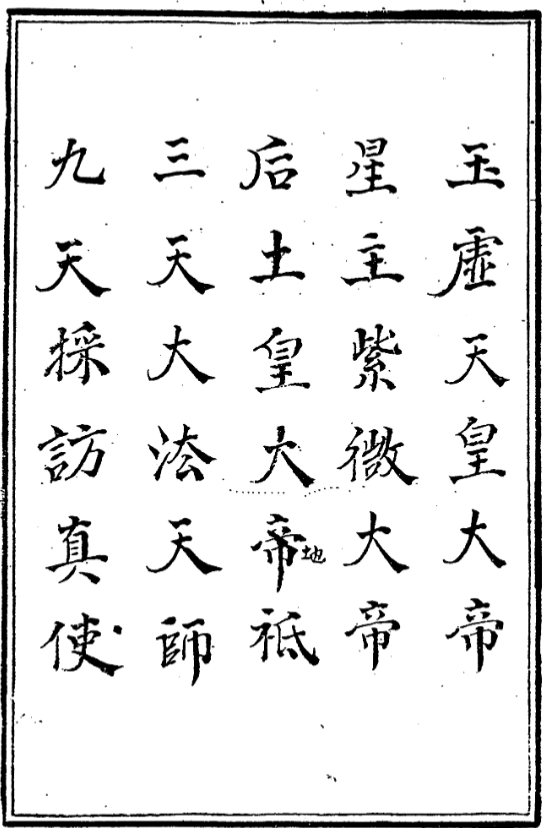 玉虛天皇大帝
星主紫微大帝
后土皇大帝地祗
三天大法天師
九天採訪真使